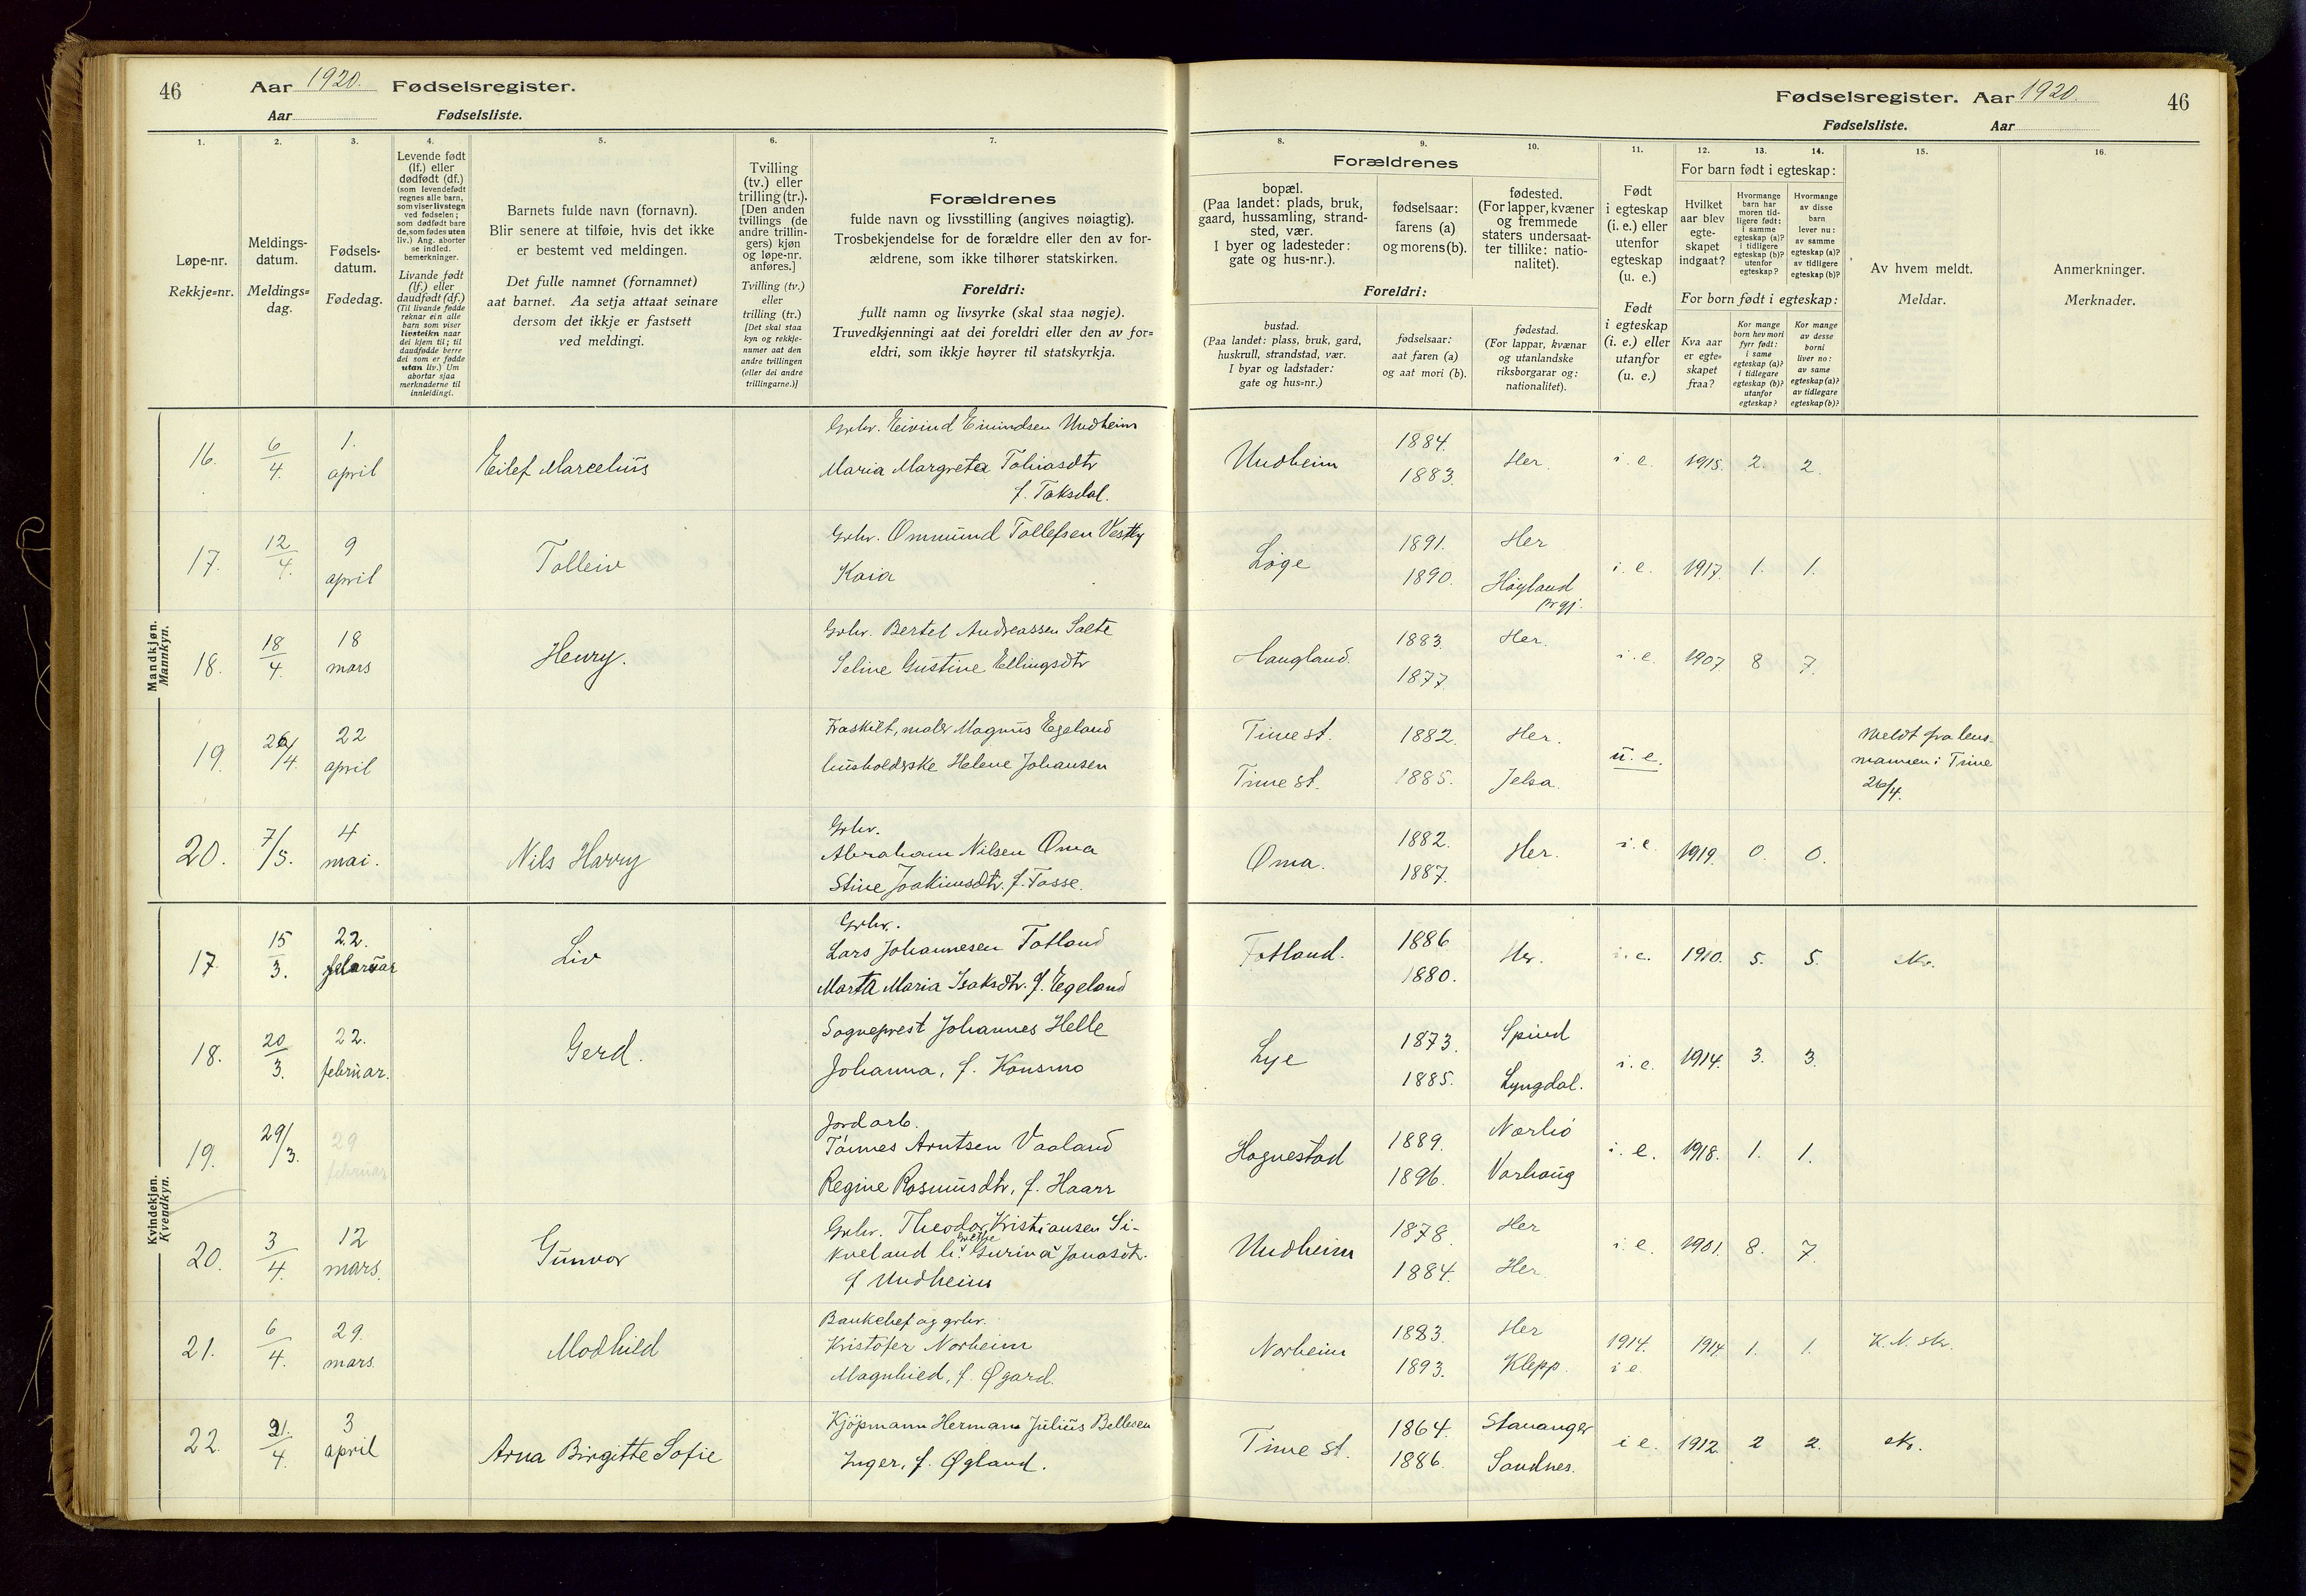 46 Aar 1920. Fødselsregister.
Aar Fødselsliste.
1. 2. 3. 4. 5. 6. 7.
Løpe-nr.
Rekkje=nr.
Meldings-
datum.
Meldings=
dag.
Fødsels-
datum.
Fødedag.
Levende født
(lf.) eller
dødfødt (df.)
(som levendefødt
regnes alle barn,
som viser livstegn
ved fødselen;
som dødfødt bare
de, som fødes uten
liv.) Ang. aborter
se indled.
bemerkninger.
Livande født
(lf.) eller
daudfødt (df.)
(Til livande fødde
reknar ein alle
barn som viser
livsteikn naar
dei kjem til; til
daudfødde berre
dei som er fødde
utan liv.) Um
abortar sjaa
merknaderne til
innleidingi.
Barnets fulde navn (fornavn).
Blir senere at tilføie, hvis det ikke
er bestemt ved meldingen.
Det fulle namnet (fornamnet)
aat barnet. Aa setja attaat seinare
dersom det ikkje er fastsett
ved meldingi.
Tvilling
(tv.) eller
trilling (tr.).
[Den anden
tvillings (de
andre trillin-
gers) kjøn
og løpe-nr.
anføres.]
Tvilling (tv.)
eller
trilling (tr.)
[Det skal staa
kyn og rekkje-
numer aat den
andre tvillingen
(eller dei andre
trillingarne.)]
Forældrenes
fulde navn og livsstilling (angives nøiagtig).
Trosbekjendelse for de forældre eller den av for-
ældrene, som ikke tilhører statskirken.
Foreldri:
fullt namn og livsyrke (skal staa nøgje).
Truvedkjenningi aat dei foreldri eller den av for=
eldri, som ikkje høyrer til statskyrkja.
Mandkjøn.
Mannkyn.
16. 6/4. 1. april Eilef Marcelius
Grbr. Eivind Enindsen Undheim
Maria Margreta Tobiasdtr
f. Taksdal.
17. 12/4. 9 april Tolleiv
Grbr. Ommund Tollefsen Vestly
Kaia
18. 18/4. 18 mars Henry.
Grbr. Bertel Andreassen Salte
Seline Gustine Ellingsdtr
19. 26/4. 22 april
Fraskilt, maler Magnus Egeland
husholderske Helene Johansen
20. 7/5. 4 mai. Nils Harry
Grbr.
Abraham Nilsen Oma
Stine Joakimsdtr. f. Fosse.
Kvindekjøn.
Kvendkyn.
17. 15/3. 22. februar Liv
Grbr.
Lars Johannesen Fotland
Marta Maria Isaksdtr. f. Egeland
18. 20/3. 22. februar. Gerd.
Sogneprest Johannes Helle
Johanna, f. Konsmo
19. 29/3. 29 februar
Jordarb.
Tønnes Arntsen Vaaland
Regine Rasmusdtr, f. Haarr
20. 3/4. 12 mars. Gunvor
Grbr. Theodor Kristiansen Si-
kveland h. Gurina Jonasdtr.
f Undheim
21. 6/4. 29. mars. Modhild
Bankchef og grbr.
Kristofer Norheim
Magnhild, f. Øgard.
22. 21./4. 3 april Arna Birgitte Sofie
Kjöpmann Herman Julius Bellesen
Inger, f. Øgland.
Fødselsregister. Aar 1920. 46
Fødselsliste. Aar
8. 9. 10. 11. 12. 13. 14. 15. 16.
Forældrenes
bopæl.
(Paa landet: plads, bruk,
gaard, hussamling, strand-
sted, vær.
I byer og ladesteder:
gate og hus-nr.).
fødselsaar:
farens (a)
og morens (b).
fødested.
(For lapper, kvæner
og fremmede
staters undersaat-
ter tillike: natio-
nalitet).
Foreldri:
bustad.
(Paa landet: plass, bruk, gard,
huskrull, strandstad, vær.
I byar og ladstader:
gate og hus=nr.)
fødselsaar:
aat faren (a)
og aat mori (b).
fødestad.
(For lappar, kvænar
og utanlandske
riksborgarar og:
nationalitet).
Født
i egteskap
(i. e.) eller
utenfor
egteskap
(u. e.)
Født
i egteskap
(i. e.) eller
utanfor
(u. e.)
For barn født i egteskap:
Hvilket
aar blev
egte-
skapet
indgaat?
Hvormange
barn har
moren tid-
ligere født:
i samme
egteskap (a)?
i tidligere
egteskap (b)?
utenfor
egteskap?
Hvormange
av disse
barn
lever nu:
av samme
egteskap (a)?
av tidligere
egteskap (b)?
For born født i egteskap:
Kva aar
er egte=
skapet
fraa?
Kor mange
born hev mori
fyrr født:
i same
egteskap (a)?
i tidlegare
egteskap (b)?
utanfor
egteskap?
Kor mange
av desse
borni
liver no:
av same
egteskap (a)?
av tidlegare
egteskap (b)?
Av hvem meldt.
Meldar.
Anmerkninger.
Merknader.
Undheim 1884. 1883. Her. i. e. 1915. 2. 2.
Löge 1891. 1890. Her Höyland prgj. i. e. 1917. 1. 1.
Haugland. 1883. 1877. Her. i. e. 1907. 8 7.
Time st. 1882. Her. u. e.
Time st. 1885. Jelsa.
Meldt fra lens-
mannen i Time
26/4.
Oma. 1882. 1887. Her. i. e. 1919. 0. 0.
Fotland. 1886 1880. Her. i. e. 1910. 5. 5. skr.
Lye 1873. 1885. Spind Lyngdal. i. e. 1914. 3. 3.
Hognestad 1889. 1896. Nærbö Varhaug i. e. 1918. 1. 1.
Undheim 1878. 1884. Her Her i. e. 1901. 8. 7.
Norheim 1883. 1893. Her Klepp. 1914. i e. 1914 1. 1. K. N. skr.
Time st. 1864. 1886. Stavanger Sandnes. i e. 1912 2 2. skr.